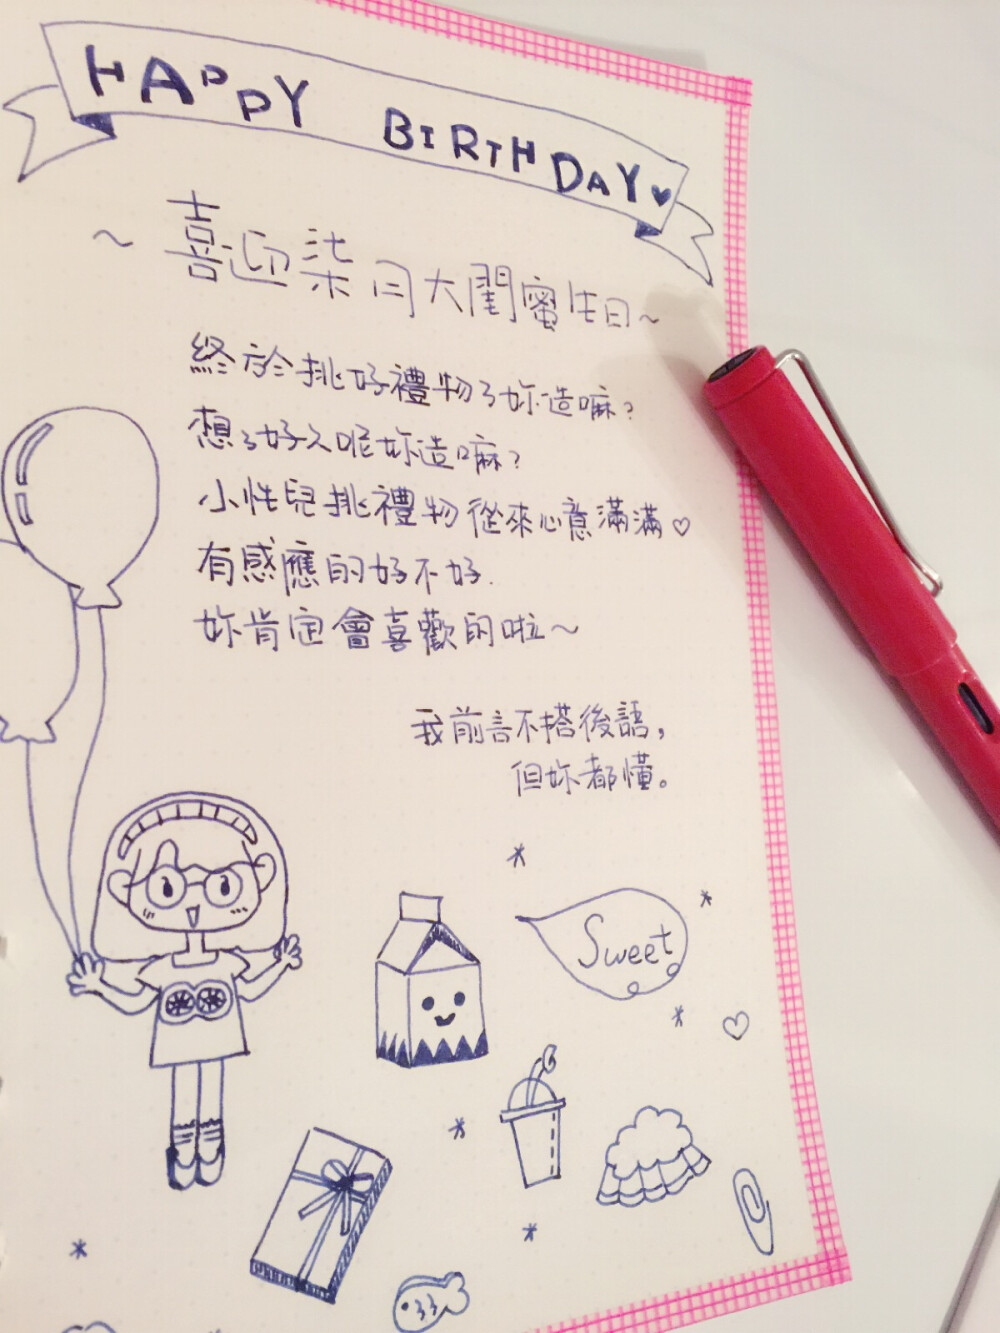 HAPPY BIRTHDAY♥
~喜迎柒月大閨蜜生日~
終於挑好禮物了妳造嘛?
想了好久呢妳造嘛?
小性兒挑禮物從來心意滿滿♡
有感應的好不好.
妳肯定會喜歡的啦~
我前言不搭後語,
但妳都懂。
Sweet